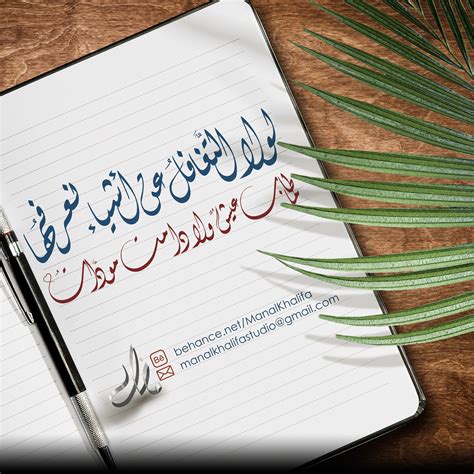 لولا التَّغافل عن أشياء نعرفها
طاب عيش ولا دامت مودات
behance.net/ManalKhalifa
Bē
manalkhalifastudio@gmail.com